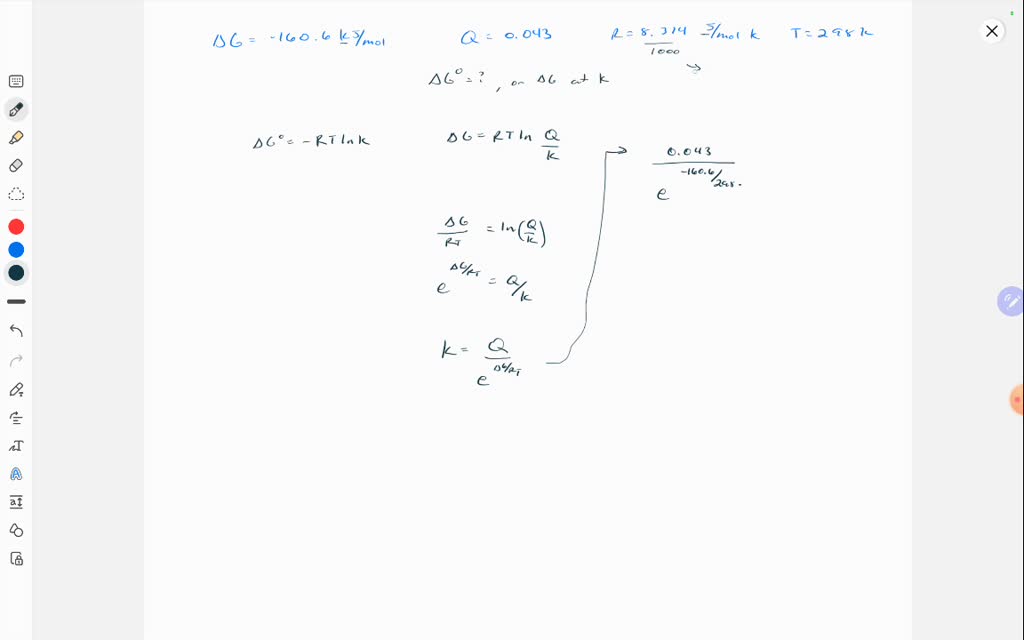 ΔG = -160.6 kJ/mol Q = 0.043 R = 8.314/1000 J/mol k T = 298 k
ΔG° = ?, or ΔG at k
ΔG° = -RT ln k ΔG = RT ln Q/k
0.043 / e^(-160.6/298.
ΔG/RT = ln(Q/k)
e^(ΔG/RT) = Q/k
k = Q / e^(ΔG/RT)